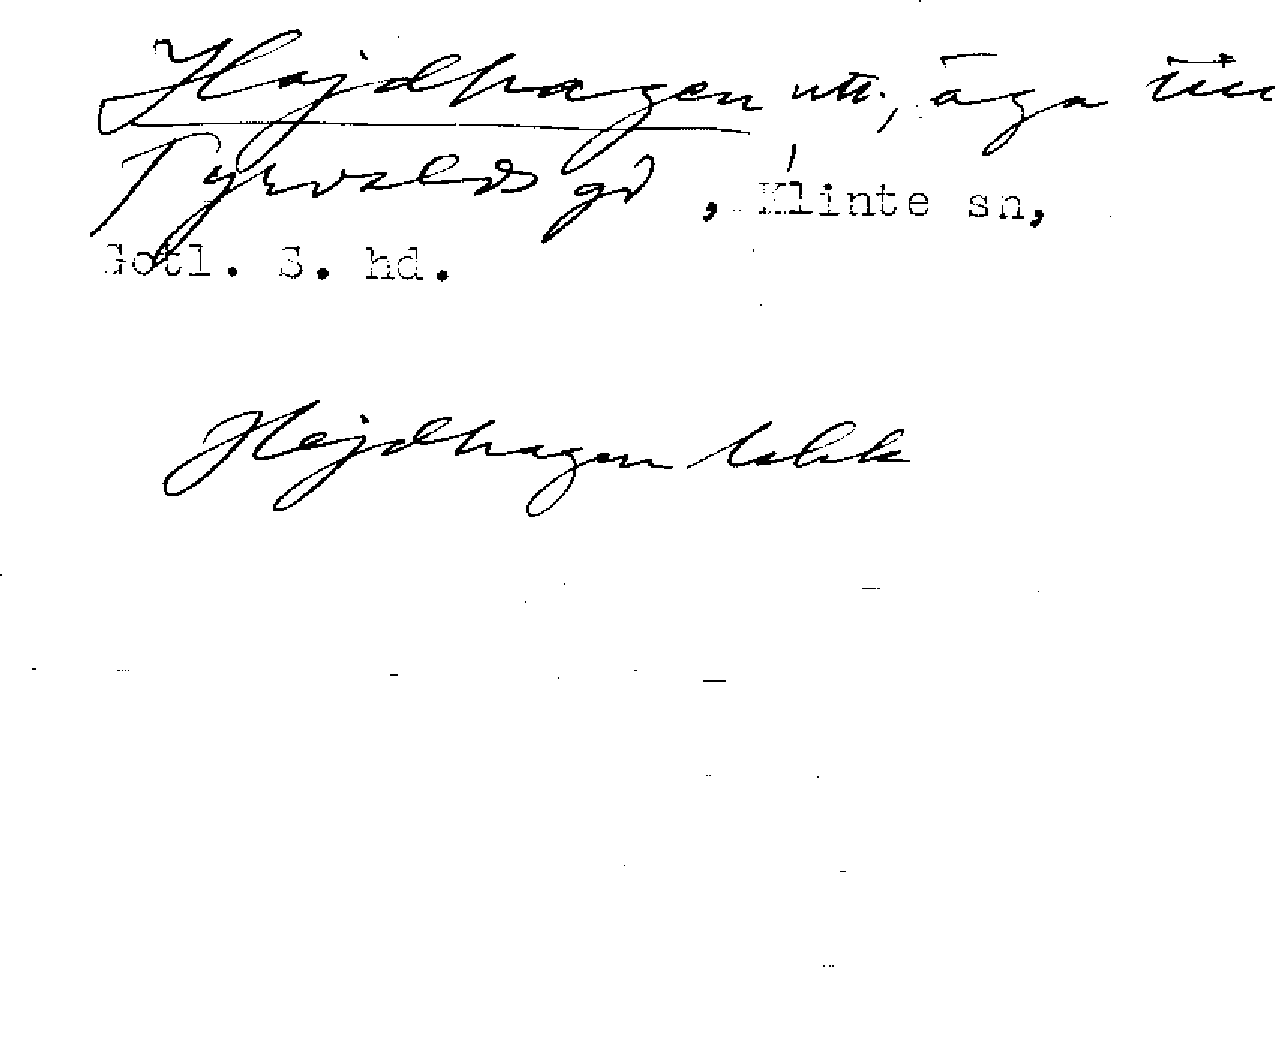 Hajdhagen utt., äga till
Tyrvalds gd, Klinte sn,
Gotl. S. hd.
Hejdhagen